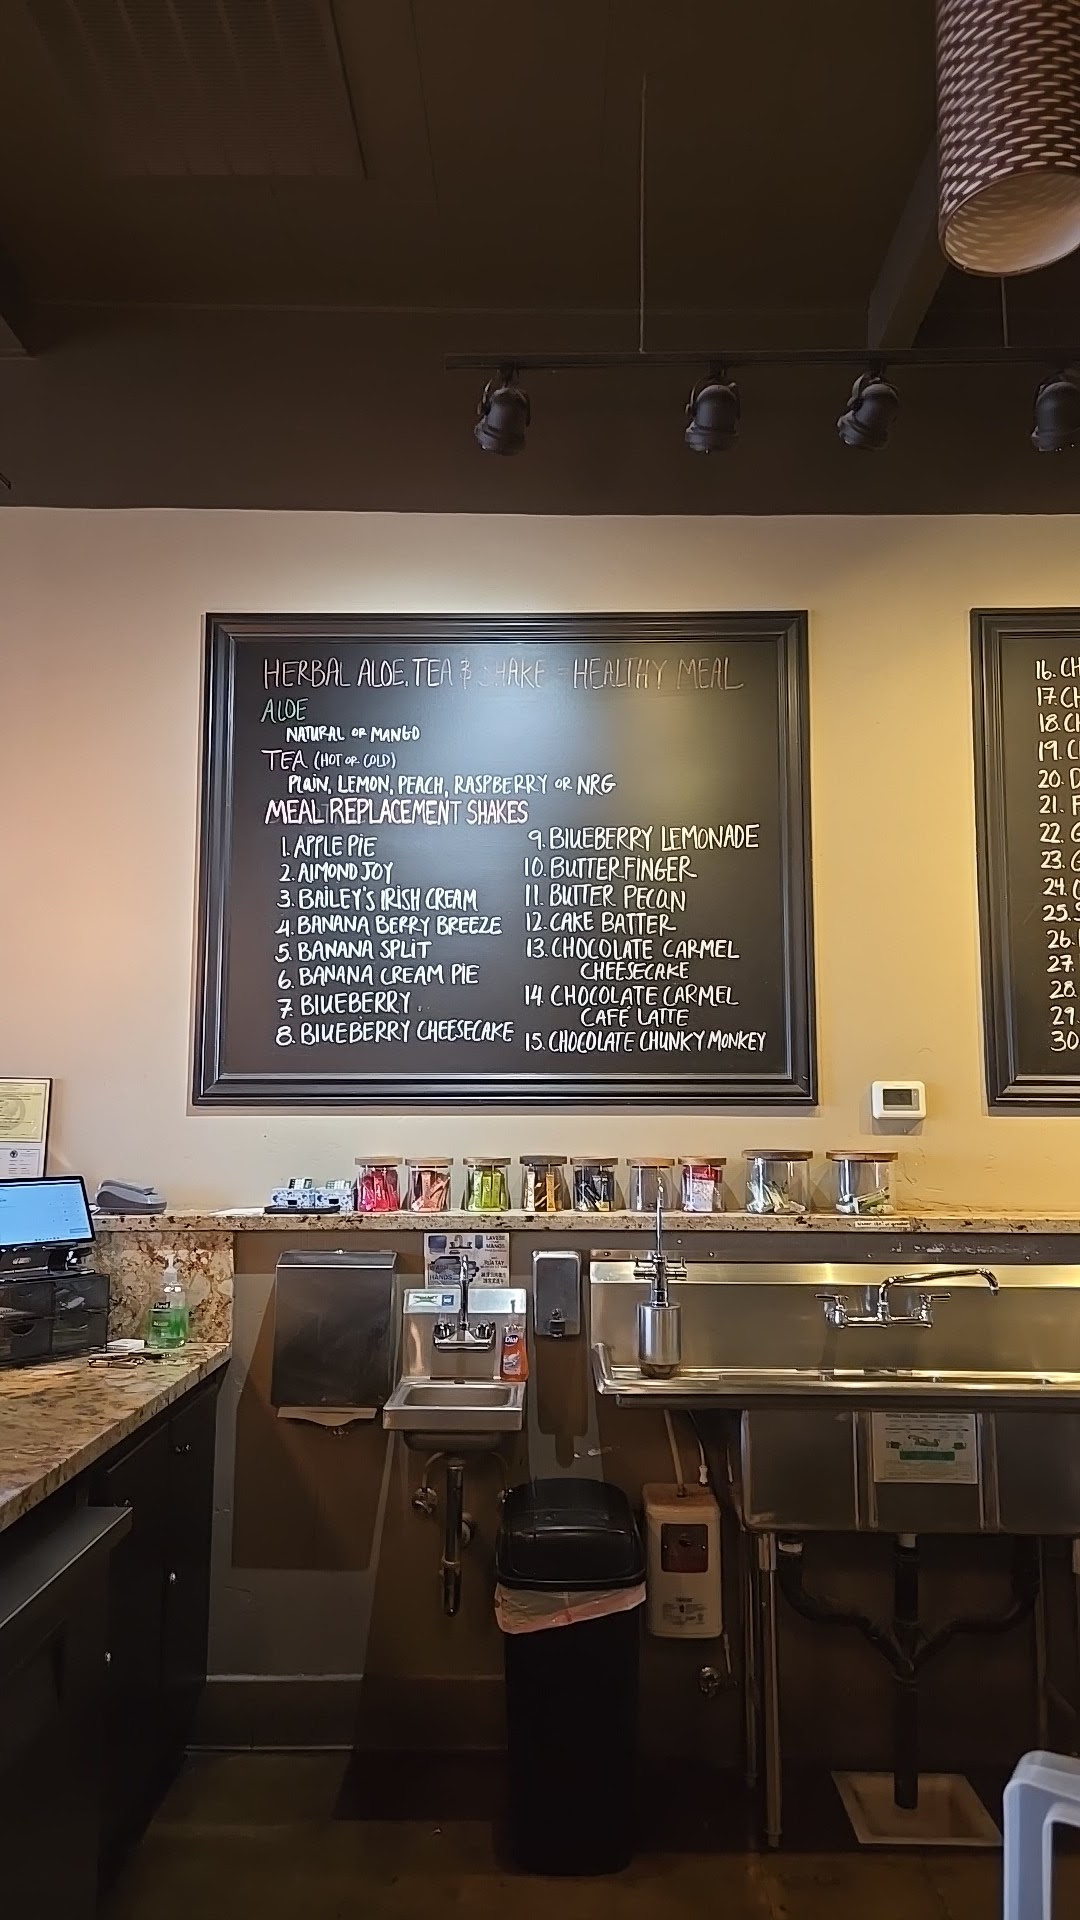 HERBAL ALOE, TEA & SHAKE = HEALTHY MEAL
ALOE
NATURAL OR MANGO
TEA (HOT OR COLD)
PLAIN, LEMON, PEACH, RASPBERRY OR NRG
MEAL REPLACEMENT SHAKES
1. APPLE PIE
2. ALMOND JOY
3. BAILEY'S IRISH CREAM
4. BANANA BERRY BREEZE
5. BANANA SPLIT
6. BANANA CREAM PIE
7 BLUEBERRY
8. BLUEBERRY CHEESECAKE
9. BLUEBERRY LEMONADE
10. BUTTERFINGER
11. BUTTER PECAN
12. CAKE BATTER
13. CHOCOLATE CARMEL
CHEESECAKE
14. CHOCOLATE CARMEL
CAFÉ LATTE
15. CHOCOLATE CHUNKY MONKEY
16. CH
17. CH
18. CH
19. C
20. D
21. F
22. G
23. G
24.
25. S
26.
27.
28.
29.
30
LAVESE
MANOS
WASH
HANDS
Dial